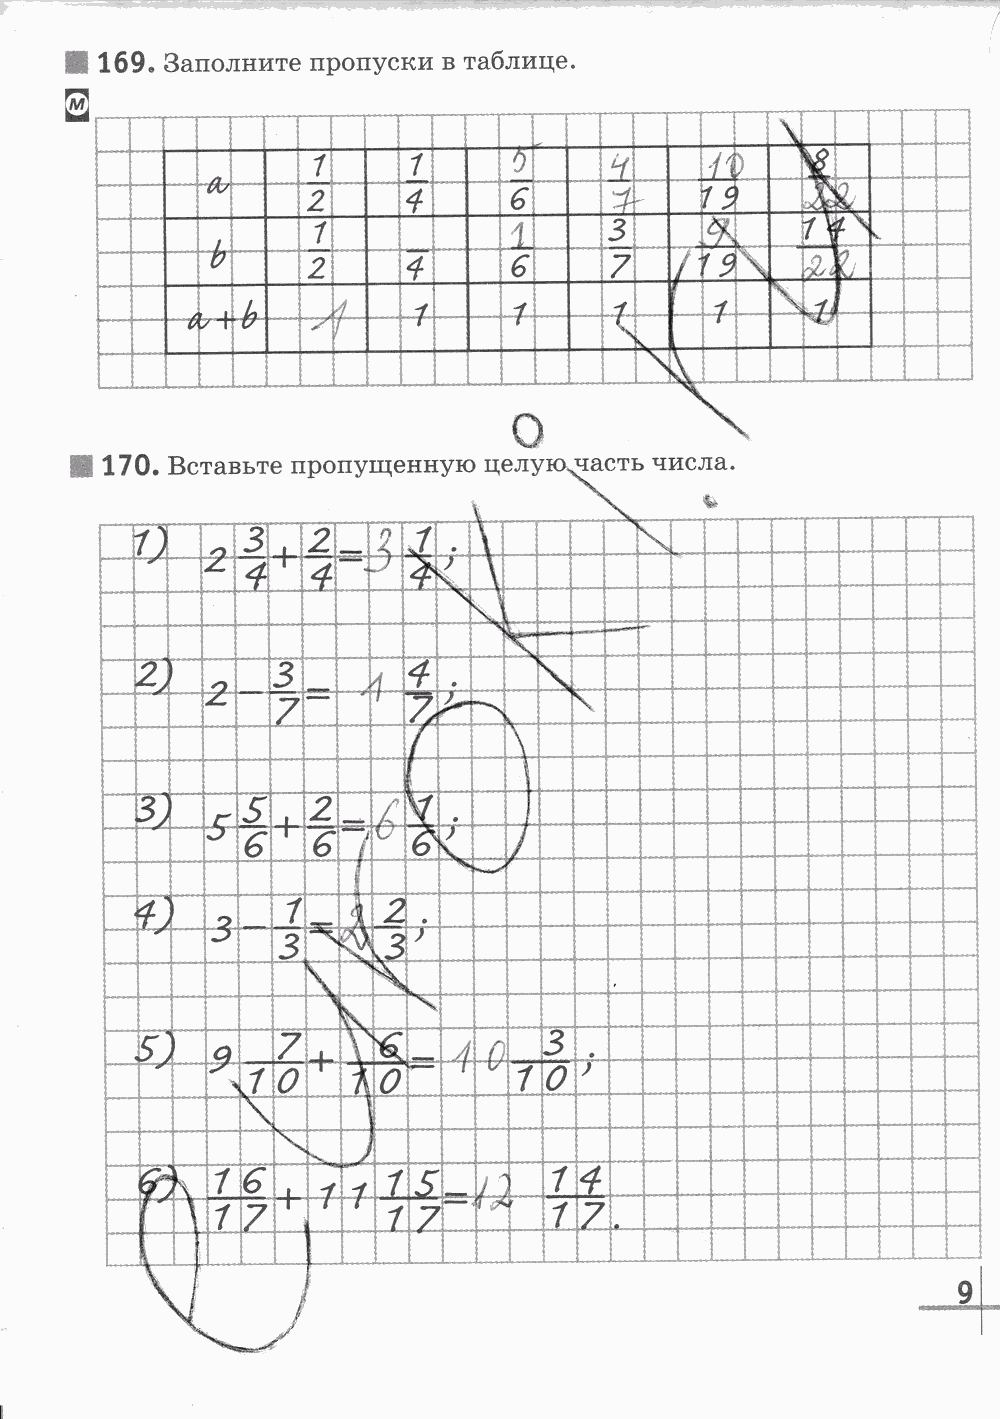 169. Заполните пропуски в таблице.
М
a 1/2 1/4 5/6 4/7 10/19 8/22
b 1/2 /4 1/6 3/7 9/19 14/22
a+b 1 1 1 1 1 1
170. Вставьте пропущенную целую часть числа.
1) 2 3/4 + 2/4 = 3 1/4 ;
2) 2 − 3/7 = 1 4/7 ;
3) 5 5/6 + 2/6 = 6 1/6 ;
4) 3 − 1/3 = 2 2/3 ;
5) 9 7/10 + 6/10 = 10 3/10 ;
6) 16/17 + 11 15/17 = 12 14/17 .
9